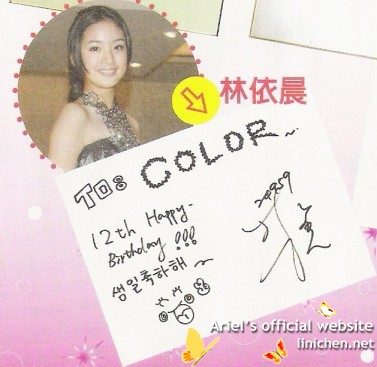 林依晨
TO: COLOR~
12th Happy-
Birthday!!!
생일축하해~
Ariel's official website
linichen.net